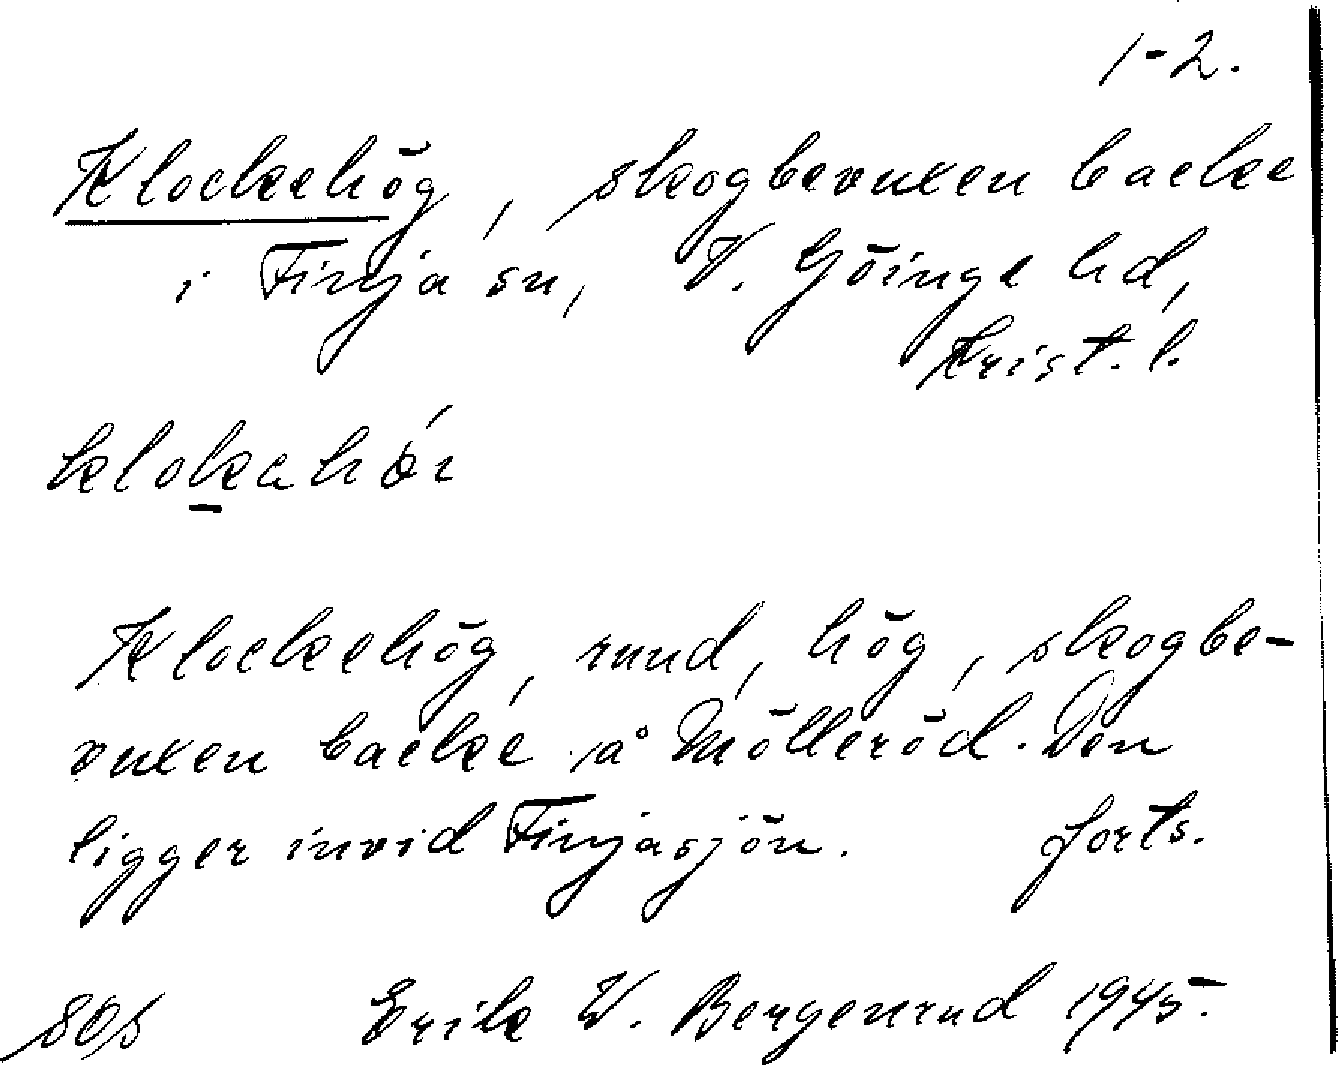 1-2.
Klockehög, skogbevuxen backe
i Finja sn, V. Göinge hd,
Krist. l.
Klockehög, rund, hög, skogbe-
vuxen backe å Mölleröd. Den
ligger invid Finjasjön. forts.
Erik W. Bergenrud 1945.